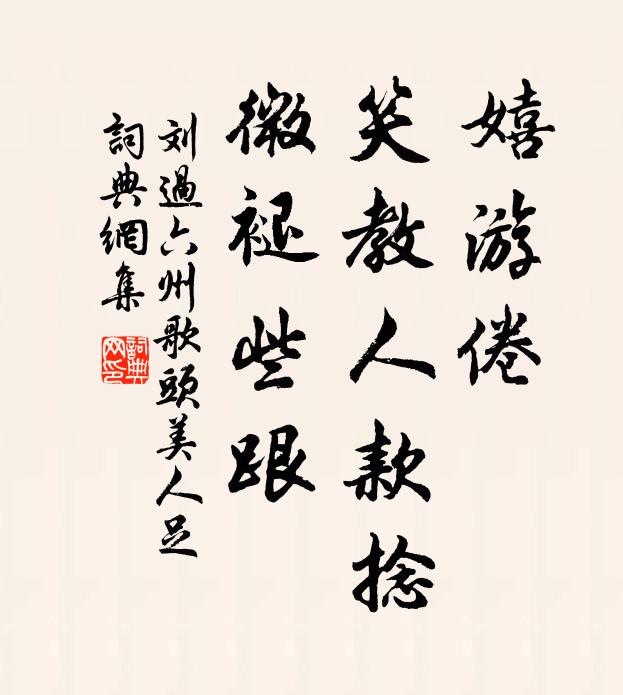 嬉游倦
笑教人款捻
微褪些跟
刘過六州歌頭美人足
詞典網集
詞典网印